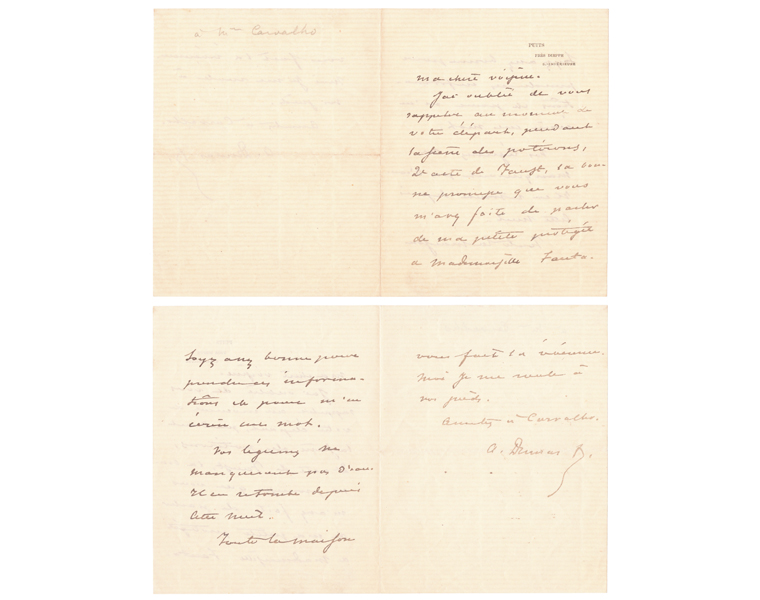 à Mme Carvalho
PUYS
PRÈS DIEPPE
S. INFÉRIEURE
Ma chère voisine.
J'ai oublié de vous
rappeler au moment de
votre départ, pendant
la scène des potirons,
2e acte de Faust, la bon-
ne promesse que vous
m'avez faite de parler
de ma petite protégée
à Mademoiselle
Soyez assez bonne pour
prendre ces informa-
tions et pour m'en
écrire un mot.
Vos légumes ne
manqueront pas d'eau.
Il en retombe depuis
cette nuit.
Toute la maison
vous fait la révérence.
Moi je me roule à
vos pieds.
Amitiés à Carvalho.
A. Dumas f.